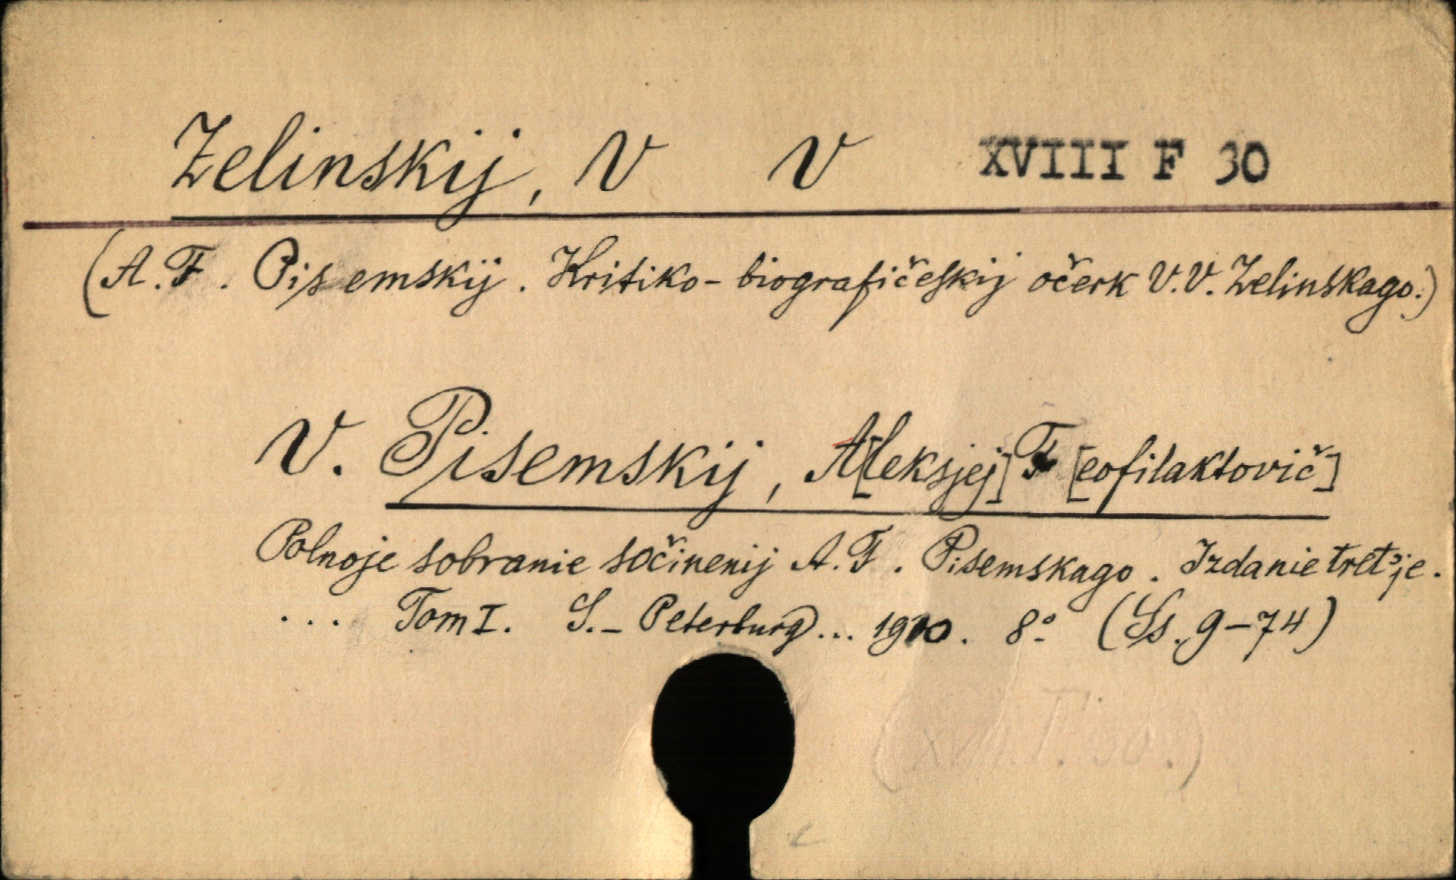 Zelinskij, V V XVIII F 30
(A. F. Pisemskij. Kritiko-biografičeskij očerk V. V. Zelinskago.)
V. Pisemskij, A[leksjej] F[eofilaktovič]
Polnoje sobranie sočinenij A. F. Pisemskago. Izdanie tret'je.
... Tom I. S.-Peterburg... 1910. 8° (Ss. 9-74)
(XVIII.F.30.)